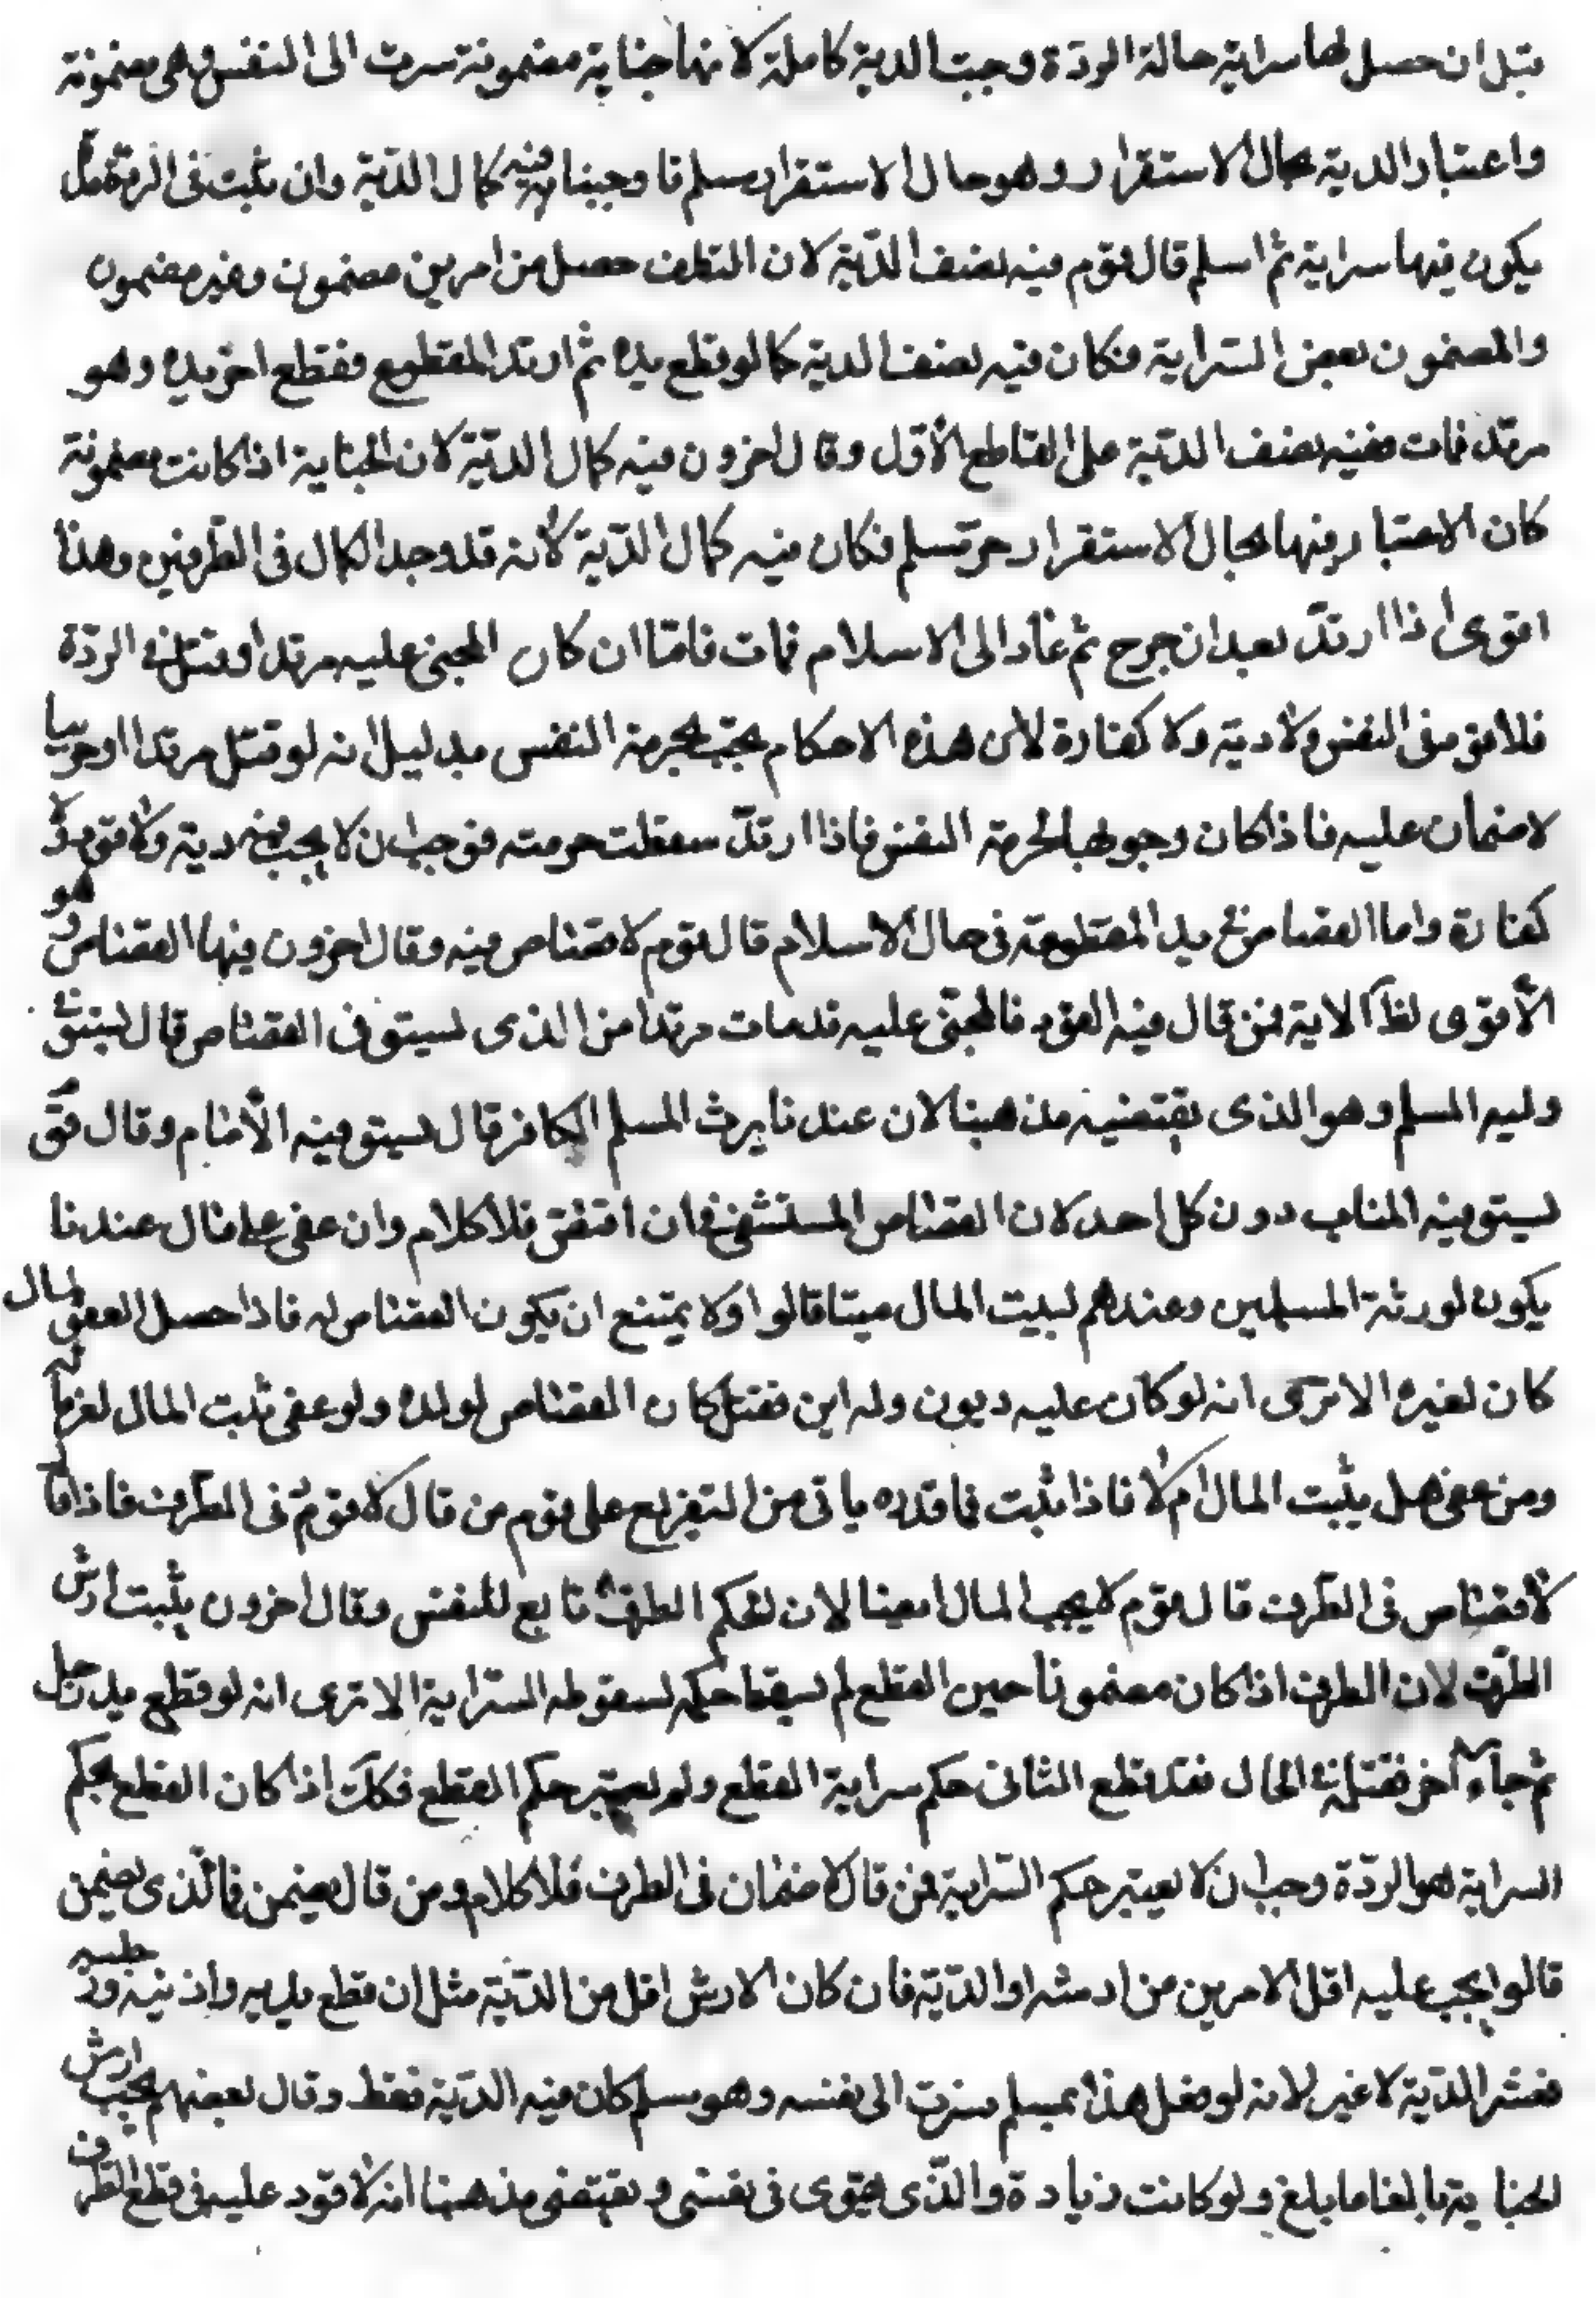 قبل ان حصل لها سراية حالة الردّة وجبت الدية كاملة لانها جناية مضمونة سرت الى النفس وهى مضمونة
واعتبار الدية بحال الاستقرار وهو حال الاستقرار مسلم فاوجبنا فيه كمال الدّية وان ثبت فى الردة مدّة
يكون فيها سراية ثم اسلم قال قوم فيه نصف الدّية لان التلف حصل من امرين مضمون وغير مضمون
والمضمون بعض السّراية فكان فيه نصف الدية كما لو قطع يده ثم ارتد المقطوع فقطع اخر يده وهو
مرتد فمات ففيه نصف الدّية على القاطع الأوّل وقال اخرون فيه كمال الدّيّة لان الجناية اذا كانت مضمونة
كان الاعتبار فيها بحال الاستقرار حر مسلم فكان فيه كمال الدّية لأنه قد وجد الكمال فى الطرفين وهذا
اقوى اذا ارتدّ بعد ان جرح ثم عاد الى الاسلام فمات فامّا ان كان المجنى عليه مرتدا وقتل فى الردّة
فلا قود فى النفس ولا دية ولا كفارة لأن هذه الاحكام يجب بحرمة النفس بدليل انه لو قتل مرتدا او حربيا
لا ضمان عليه فاذا كان وجوبها لحرمة النفس فاذا ارتدّ سقطت حرمته فوجب ان لا يجب فيه دية ولا قود ولا
كفارة واما القصاص فى يد المقطوعة فى حال الاسلام قال قوم لا قصاص فيه وقال اخرون فيها القصاص وهو
الأقوى لظاَ الاية فمن قال فيه القود فالمجنى عليه قدمات مرتدا من الذى يستوفى القصاص قال يستوفى
وليه المسلم وهو الذى يقتضيه مذهبنا لان عندنا يرث المسلم الكافر قال يستوفيه الأمام وقال قوم
يستوفيه المناسب دون كل احد لان القصاص المستشفى فان اقتصّ فلا كلام وان عفى على مال عندنا
يكون لورثة المسلمين وعندهم لبيت المال ميتا قالوا ولا يمتنع ان يكون القصاص له فاذا حصل العفو لمال
كان لغيره الا ترى انه لو كان عليه ديون وله ابن فقتل كان القصاص لولده ولو عفى ثبت المال لغرمائه
ومن عفى هل يثبت المال ام لا فاذا ثبت فما قدره ياتى من التفريع على قوم من قال لا قود فى الطرف فاذا قال
لا قصاص فى الطرف قال قوم لا يجب المال ايضا لان حكم الطرف تابع للنفس وقال اخرون يثبت ارش
الطّرف لان الطرف اذا كان مضمونا حين القطع لم يسقط حكمه لسقوط السّراية الا ترى انه لو قطع يد رجل
ثم جاء آخر فقتله فى الحال فقد قطع الثانى حكم سراية القطع ولم يعتبر حكم القطع فكك اذا كان القطع بحكم
السراية هو الردّة وجب ان لا يعتبر حكم السّراية فمن قال لا ضمان فى الطرف فلا كلام ومن قال يضمن فما الّذى يضمن
قالوا يجب عليه اقل الامرين من ارشه او الدّيّة فان كان الارش اقل من الدّيّة مثل ان قطع يديه واذنيه ورجليه
ففيه الدّية لا غير لانه لو فعل هذا بمسلم فسرت الى نفسه وهو مسلم كان فيه الدّيّة فقط وقال بعضهم يجب ارش
الجناية بالغا ما بلغ ولو كانت زيادة والّذى يقوى فى نفسى ويقتضى مذهبنا انه لا قود عليه فى قطع الطرف